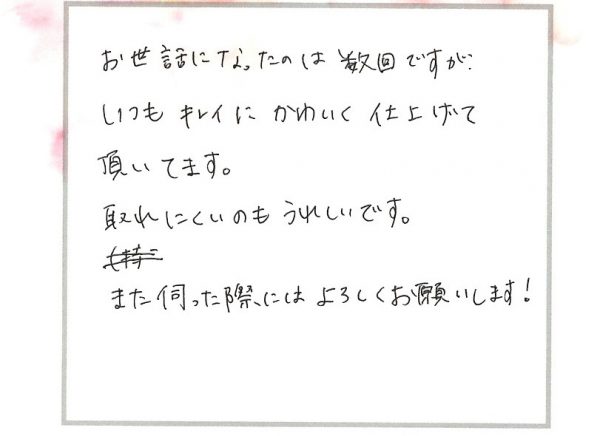 お世話になったのは数回ですが…
いつもキレイにかわいく仕上げて
頂いてます。
取れにくいのもうれしいです。
また伺った際にはよろしくお願いします！